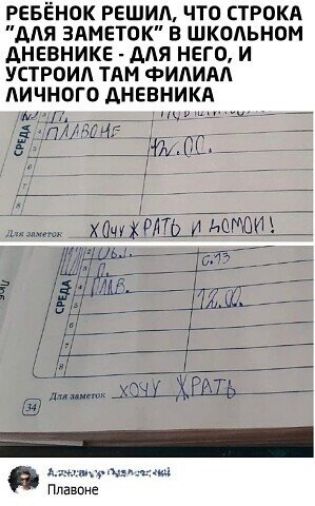 РЕБЁНОК РЕШИЛ, ЧТО СТРОКА
"ДЛЯ ЗАМЕТОК" В ШКОЛЬНОМ
ДНЕВНИКЕ - ДЛЯ НЕГО, И
УСТРОИЛ ТАМ ФИЛИАЛ
ЛИЧНОГО ДНЕВНИКА
СРЕДА
2 П.
ПЛАВОНЕ
12.00.
5
6
7
8
Для заметок ХОЧУ ЖРАТЬ И ДОМОЙ!
СРЕДА
с.13
П.
ПЛАВ.
12.00.
5
6
7
8
Для заметок ХОЧУ ЖРАТЬ
34
Плавоне